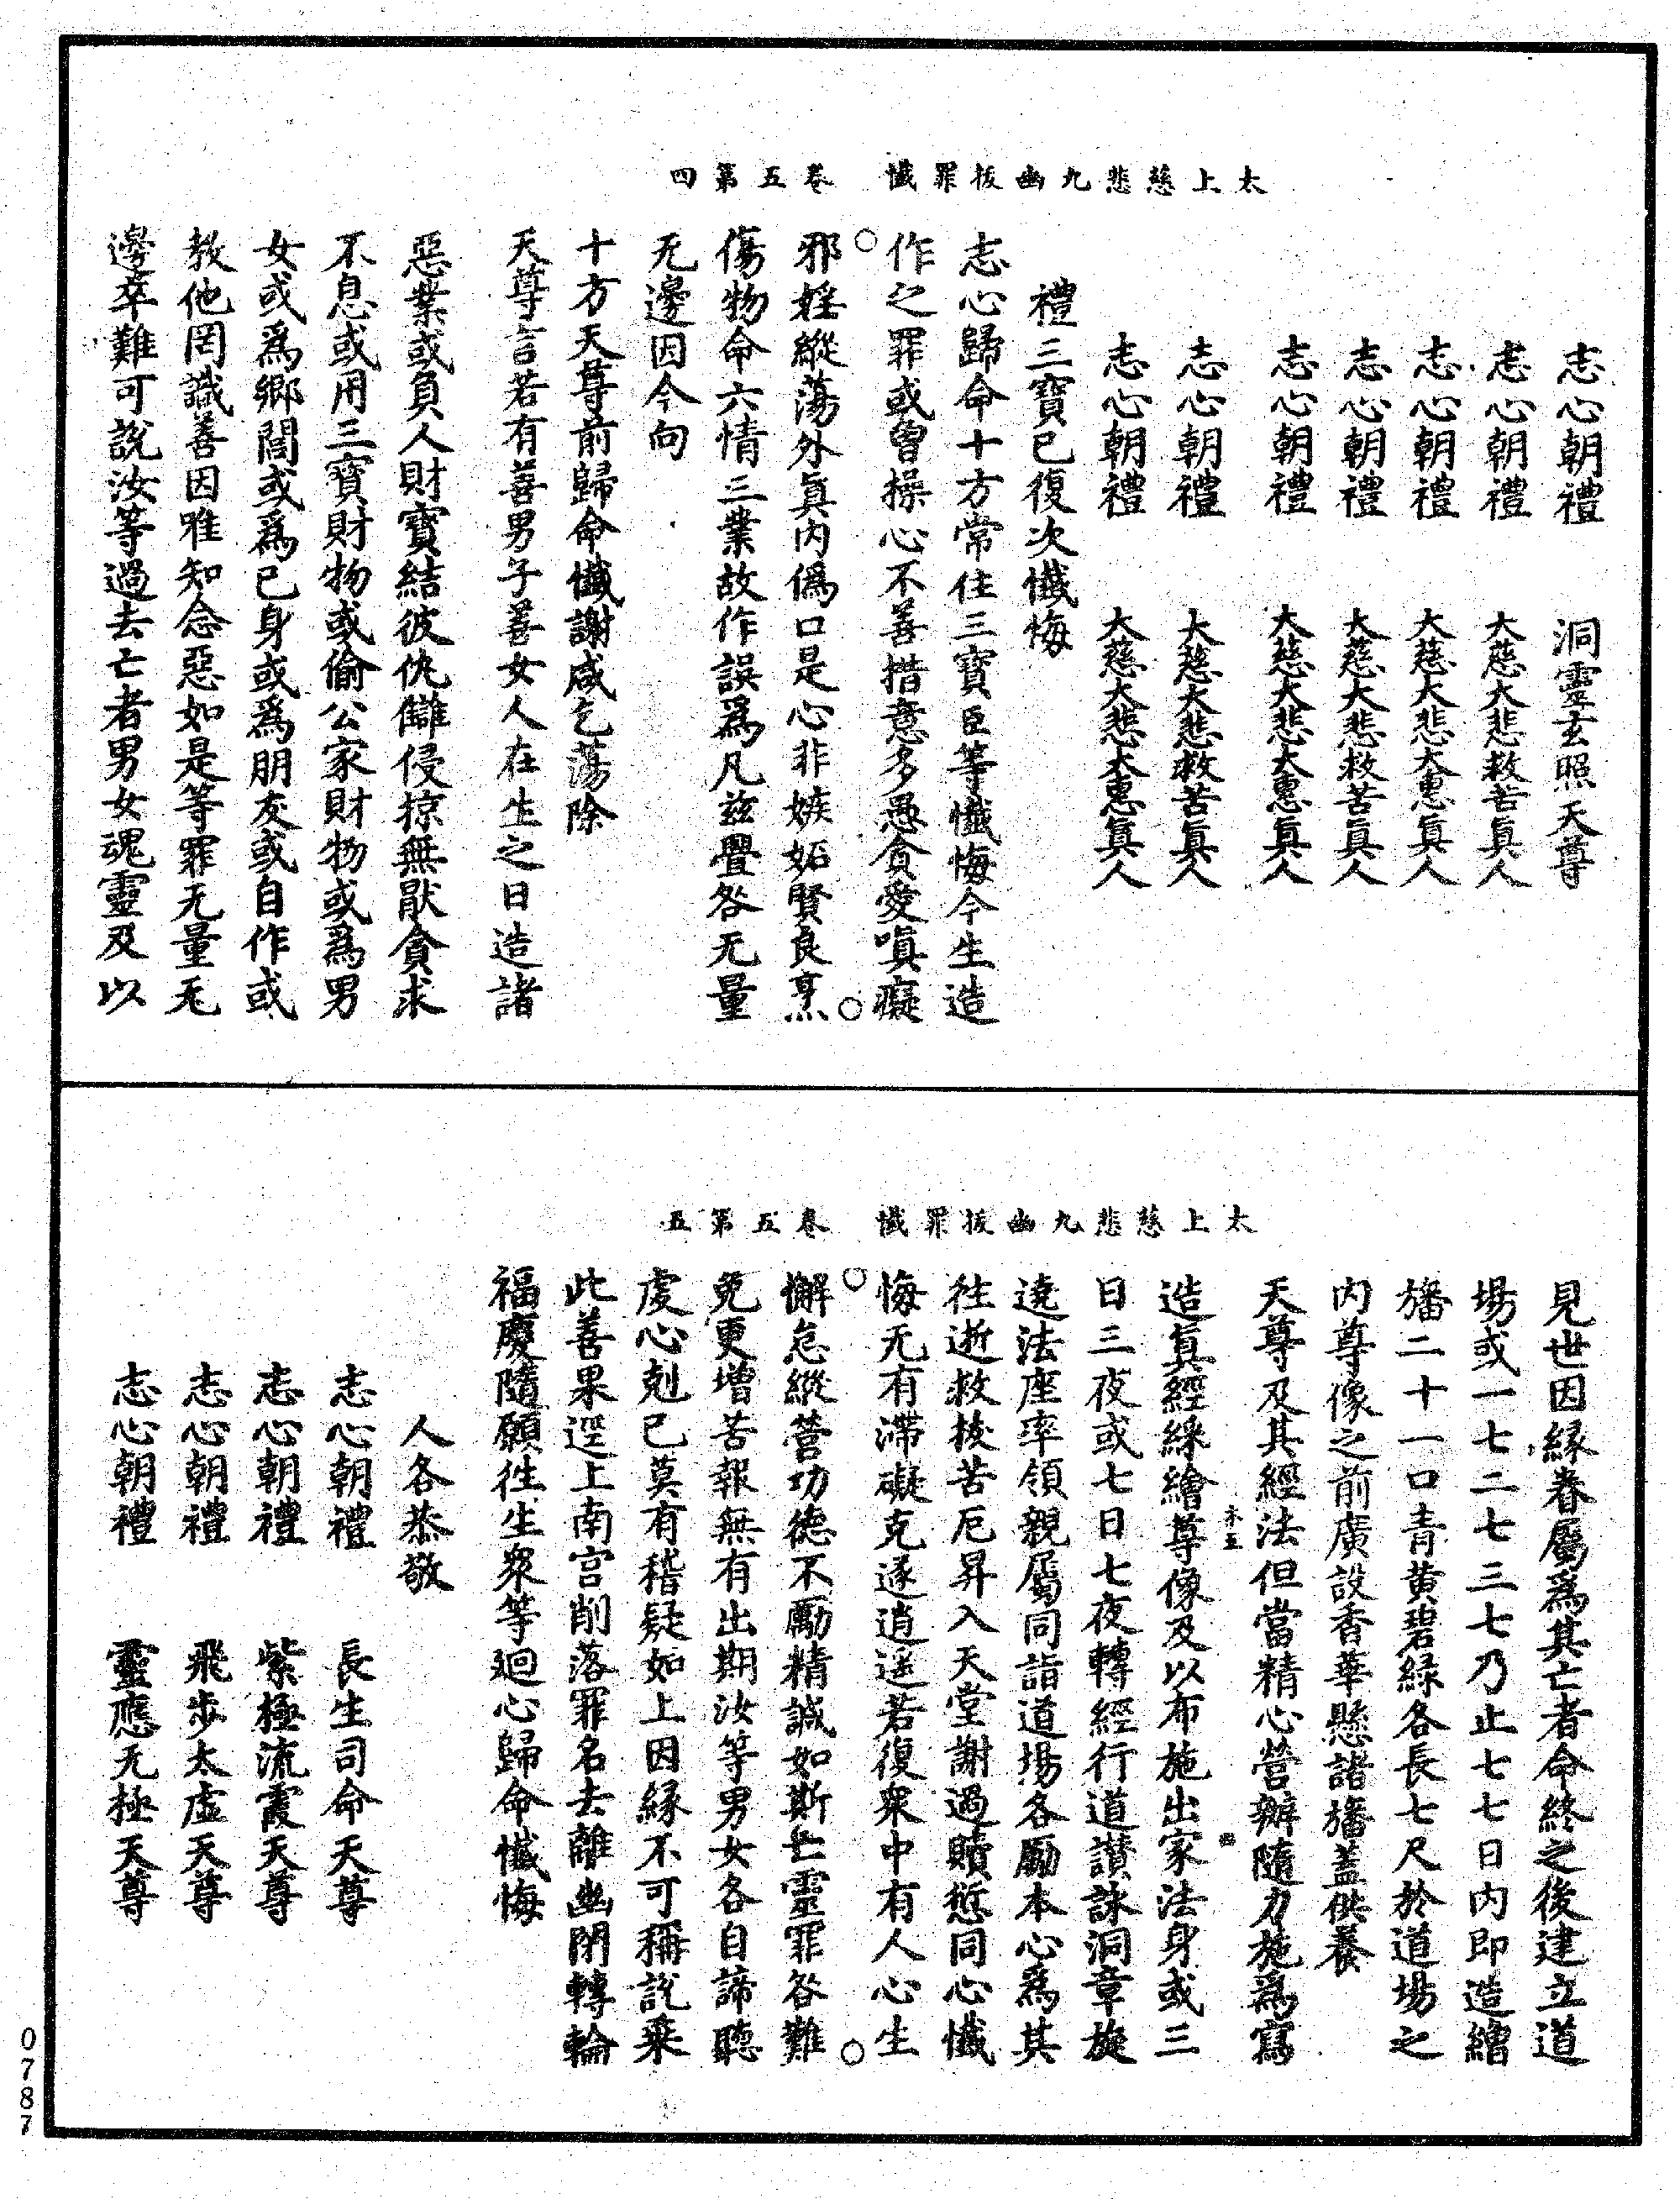 太上慈悲九幽拔罪懺　卷五第四
志心朝禮　洞靈玄照天尊
志心朝禮　大慈大悲救苦真人
志心朝禮　大慈大悲大惠真人
志心朝禮　大慈大悲救苦真人
志心朝禮　大慈大悲大惠真人
志心朝禮　大慈大悲救苦真人
志心朝禮　大慈大悲大惠真人
禮三寶已復次懺悔
志心歸命十方常住三寶臣等懺悔今生造
作之罪或曾操心不善措意多愚貪愛嗔癡
邪婬縱蕩外真內偽口是心非嫉妬賢良烹
傷物命六情三業故作誤為凡茲疊咎无量
无邊因今向
十方天尊前歸命懺謝咸乞蕩除
天尊言若有善男子善女人在生之日造諸
惡業或負人財寶結彼仇讎侵掠無猒貪求
不息或用三寶財物或偷公家財物或為男
女或為鄉閭或為己身或為朋友或自作或
教他罔識善因唯知念惡如是等罪无量无
邊卒難可說汝等過去亡者男女魂靈及以
太上慈悲九幽拔罪懺　卷五第五
見世因緣眷屬為其亡者命終之後建立道
場或一七二七三七乃止七七日內即造繒
旛二十一口青黃碧綠各長七尺於道場之
內尊像之前廣設香華懸諸旛蓋供養
天尊及其經法但當精心營辦隨力施為寫
造真經綵繪尊像及以布施出家法身或三
日三夜或七日七夜轉經行道讚詠洞章旋
遶法座率領親屬同詣道場各勵本心為其
往逝救拔苦厄昇入天堂謝過贖愆同心懺
悔无有滯礙克遂逍遥若復眾中有人心生
懈怠縱營功德不勵精誠如斯亡靈罪咎難
免更增苦報無有出期汝等男女各自諦聽
虔心剋己莫有稽疑如上因緣不可稱說乘
此善果逕上南宮削落罪名去離幽閉轉輪
福慶隨願往生眾等迴心歸命懺悔
人各恭敬
志心朝禮　長生司命天尊
志心朝禮　紫極流霞天尊
志心朝禮　飛步太虛天尊
志心朝禮　靈應无極天尊
0787